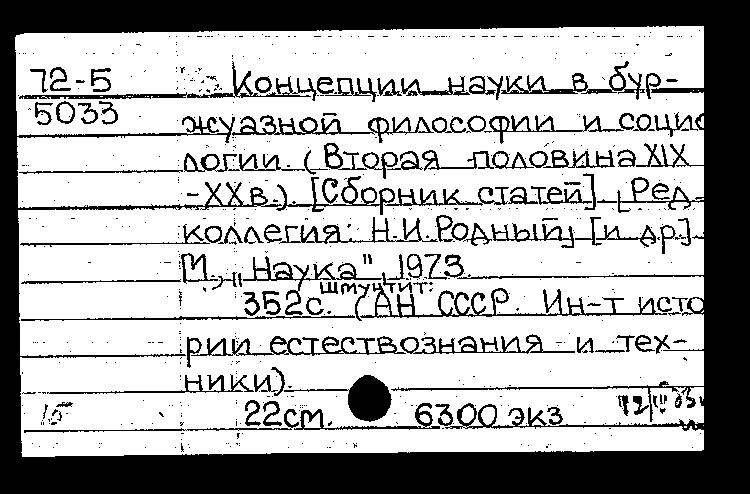 72-5 Концепции науки в бур-
5033 жуазной философии и социо
логии. (Вторая половина XIX
-XX в.). [Сборник статей]. [Ред-
коллегия: Н.И.Родный, [и др.]
М., "Наука", 1973.
шмуцтит:
352с. (АН СССР. Ин-т исто
рии естествознания и тех-
ники).
15 22см. 6300 экз